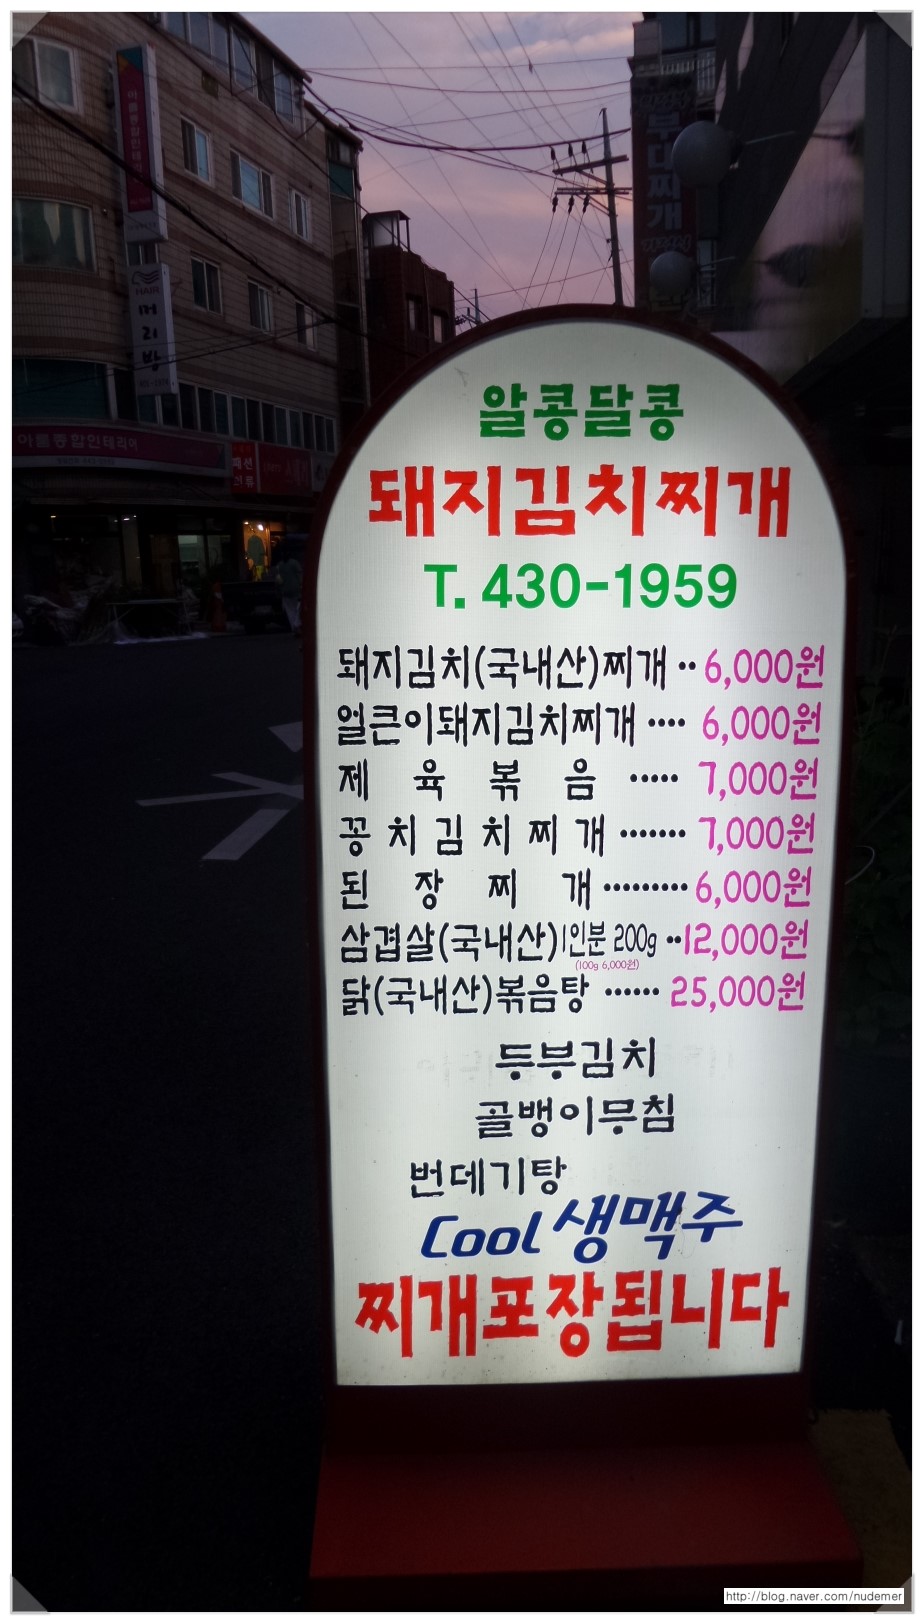 부대찌개
HAIR
머리방
아름종합인테리어
패션
알콩달콩
돼지김치찌개
T. 430-1959
돼지김치(국내산)찌개 ·· 6,000원
얼큰이돼지김치찌개 ···· 6,000원
제 육 볶 음 ····· 7,000원
꽁치김치찌개 ······· 7,000원
된 장 찌 개 ········· 6,000원
삼겹살(국내산)1인분 200g ··12,000원
(100g 6,000원)
닭(국내산)볶음탕 ······ 25,000원
두부김치
골뱅이무침
번데기탕
Cool 생맥주
찌개포장됩니다
http://blog.naver.com/nudemer